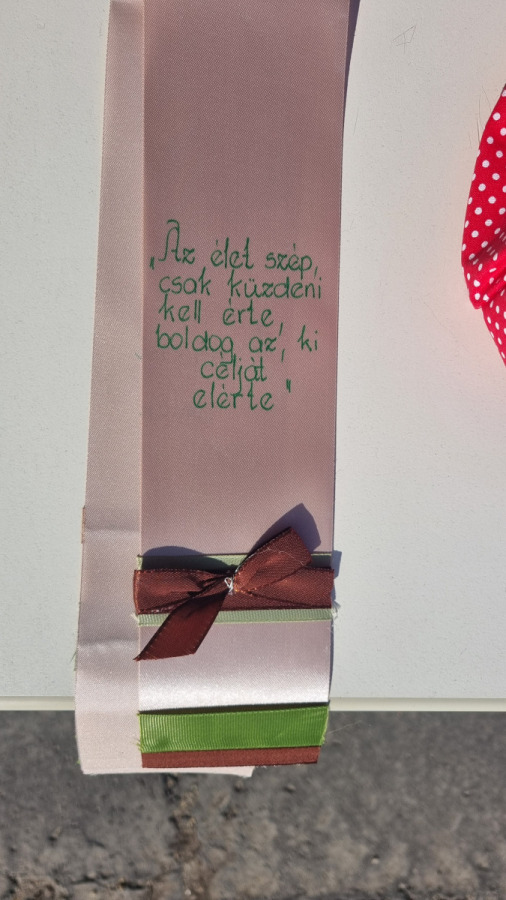 „Az élet szép,
csak küzdeni
kell érte,
boldog az, ki
célját
elérte"